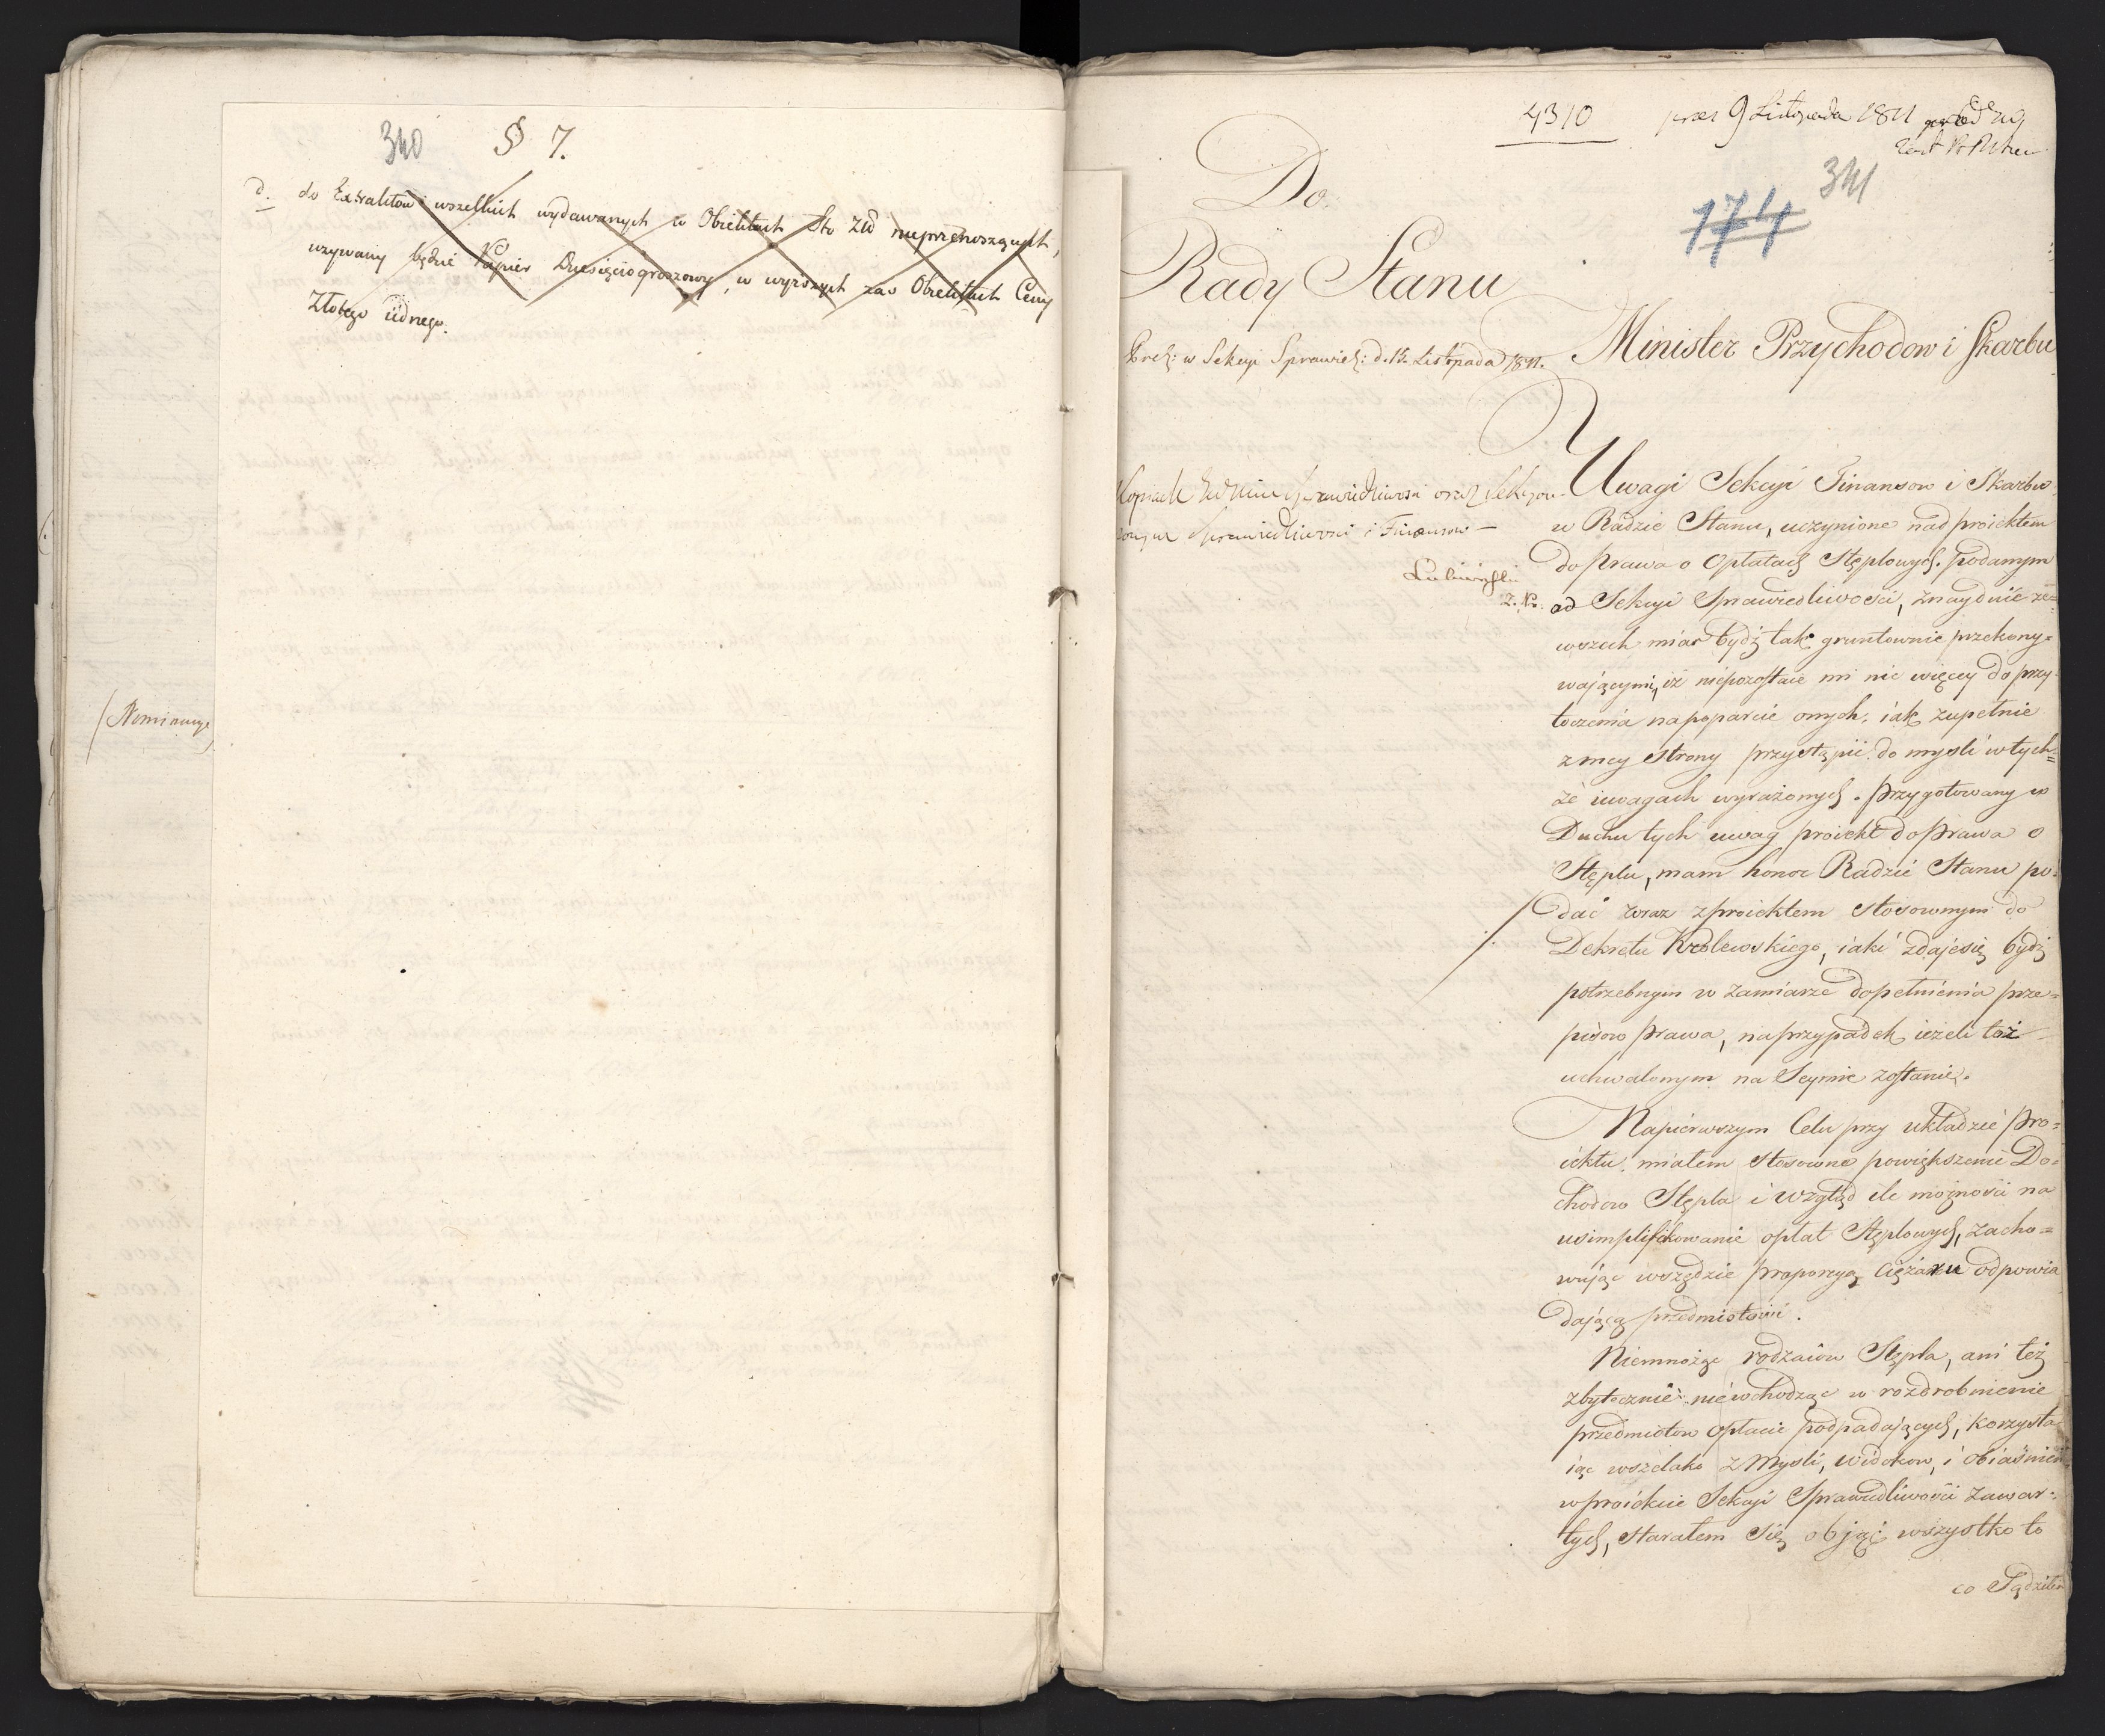 340 § 7.
d. do Extraktow wszelkich wydawanych w Obiektach Sto Złł nieprzenoszących,
używany będzie Papier Dziesięciogroszowy, w wyższych zaś Obiektach Ceny
Złotego iednego.
(Nominacye)
4310 prez 9 Listopada 1811
341
174
Do.
Rady Stanu
Minister Przychodow i Skarbu
Prod: w Sekcyi Sprawied: d. 15. Listopada 1811.
Sprawiedliwosci oraz
Sprawiedliwosci i Finansow —
Uwagi Sekcyi Finansow i Skarbu
w Radzie Stanu, uczynione nad proiektem
do Prawa o Opłatach Stęplowych. podanym
od Sekcyi Sprawiedliwości, znayduię ze=
wszech miar bydź tak gruntownie przekony=
wającymi, iż niepozostaie mi nic więcey do przy
toczenia na poparcie onych. iak zupełnie
z mey strony przystąpić do mysli w tych=
że uwagach wyrażonych. Przygotowany w
Duchu tych uwag proiekt do Prawa o
Stęplu, mam honor Radzie Stanu po=
dać wraz z proiektem stosownym do
Dekretu Krolewskiego, iaki zdaje się bydź
potrzebnym w zamiarze dopełnienia prze=
pisow Prawa, na przypadek ieżeli toż
uchwalonym na Seymie zostanie.
Napierwszym Celu przy układzie Pro=
iektu. miałem stosowne powiększenie Do=
chodow Stępla i wzgląd ile możności na
usimplifikowanie opłat Stęplowych, zacho=
wując wszędzie proporcyą ciężaru odpowia
dającą przedmiotowi.
Niemnożąc rodzaiow Stępla, ani też
zbytecznie niewchodząc w rozdrobnienie
przedmiotow opłacie podpadających, korzysta
iąc wszelako z Mysli, widokow, i obiaśnień
w proiekcie Sekcyi Sprawiedliwości zawar=
tych, starałem się objąć wszystko to
co Sądziłem